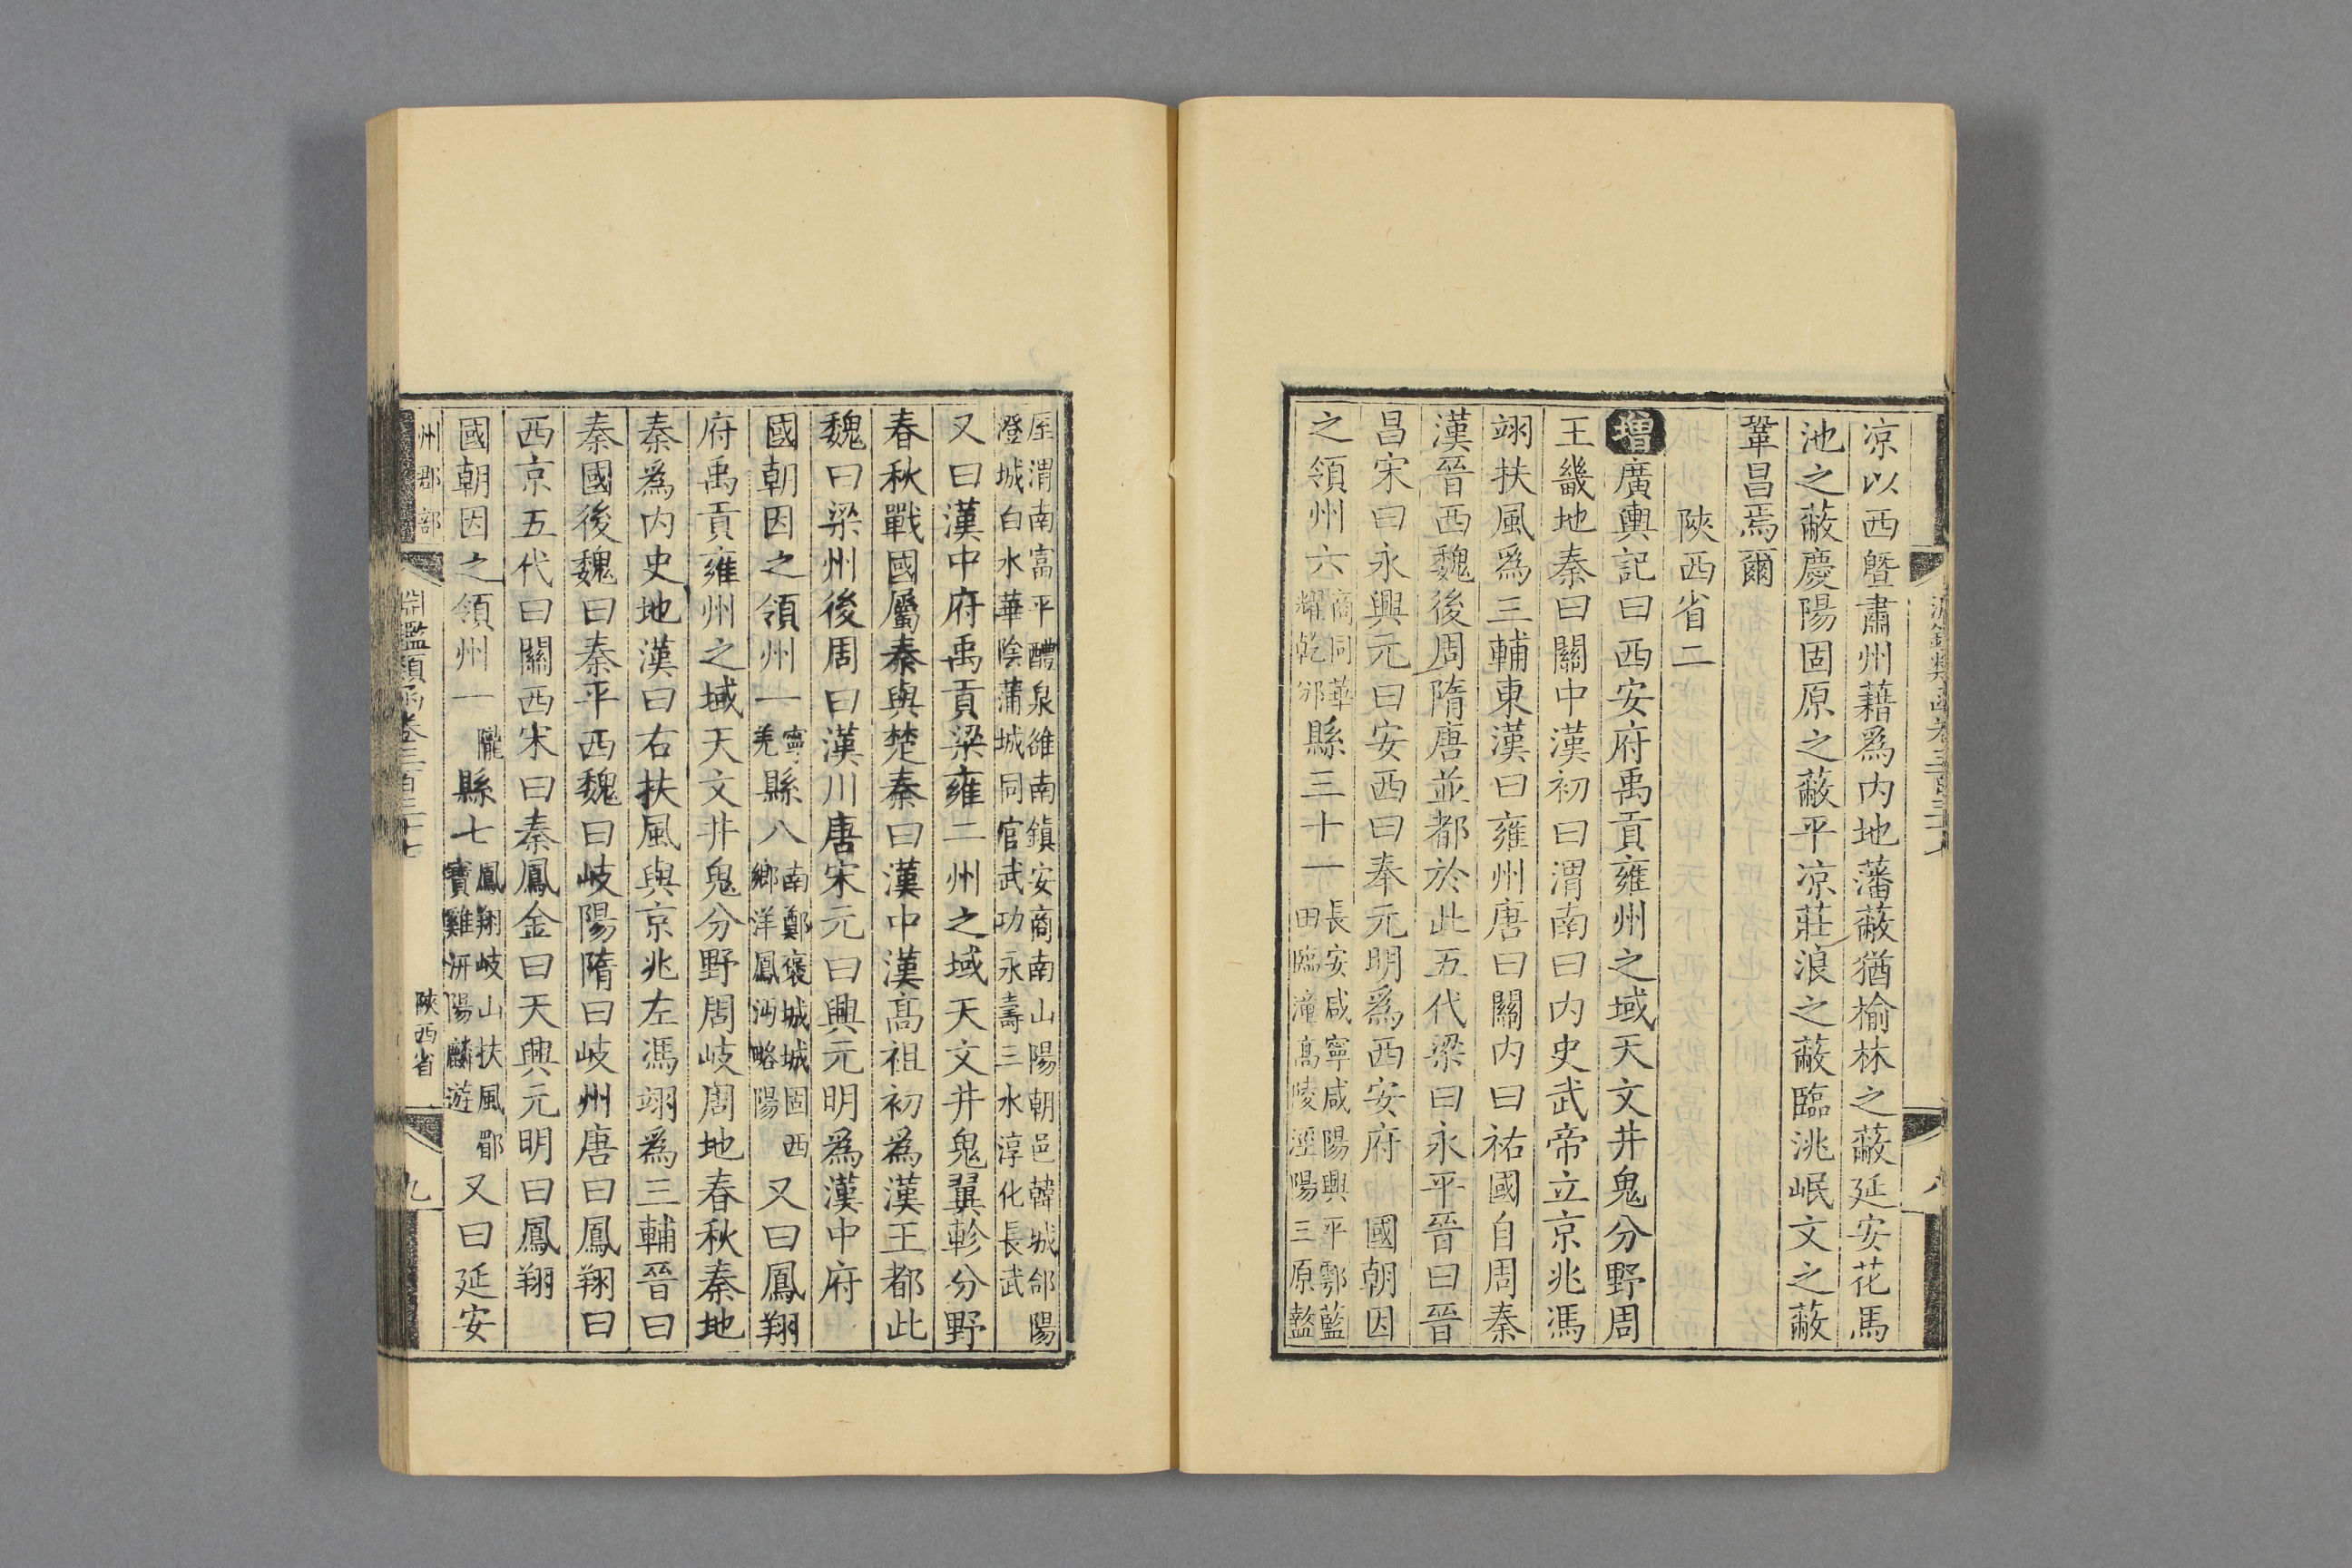 凉以西曁肅州藉爲内地藩蔽猶榆林之蔽延安花馬
池之蔽慶陽固原之蔽平凉莊浪之蔽臨洮岷文之蔽
鞏昌焉爾
陜西省二
增廣輿記曰西安府禹貢雍州之域天文井鬼分野周
王畿地秦曰關中漢初曰渭南曰内史武帝立京兆馮
翊扶風爲三輔東漢曰雍州唐曰關内曰祐國自周秦
漢晉西魏後周隋唐並都於此五代梁曰永平晉曰晉
昌宋曰永興元曰安西曰奉元明爲西安府國朝因
之領州六商同華耀乾邠縣三十一長安咸寧咸陽興平鄠藍田臨潼高陵涇陽三原盩
厔渭南富平醴泉雒南鎮安商南山陽朝邑韓城郃陽
澄城白水華陰蒲城同官武功永壽三水淳化長武
又曰漢中府禹貢梁雍二州之域天文井鬼翼軫分野
春秋戰國屬秦與楚秦曰漢中漢高祖初爲漢王都此
魏曰梁州後周曰漢川唐宋元曰興元明爲漢中府
國朝因之領州一寧羌縣八南鄭褒城城固西鄉洋鳳沔略陽又曰鳳翔
府禹貢雍州之域天文井鬼分野周岐周地春秋秦地
秦爲内史地漢曰右扶風與京兆左馮翊爲三輔晉曰
秦國後魏曰秦平西魏曰岐陽隋曰岐州唐曰鳳翔曰
西京五代曰關西宋曰秦鳳金曰天興元明曰鳳翔
國朝因之領州一隴縣七鳳翔岐山扶風郿寶雞汧陽麟遊又曰延安
州郡部
淵鑑類函卷三百三十七
陜西省
九